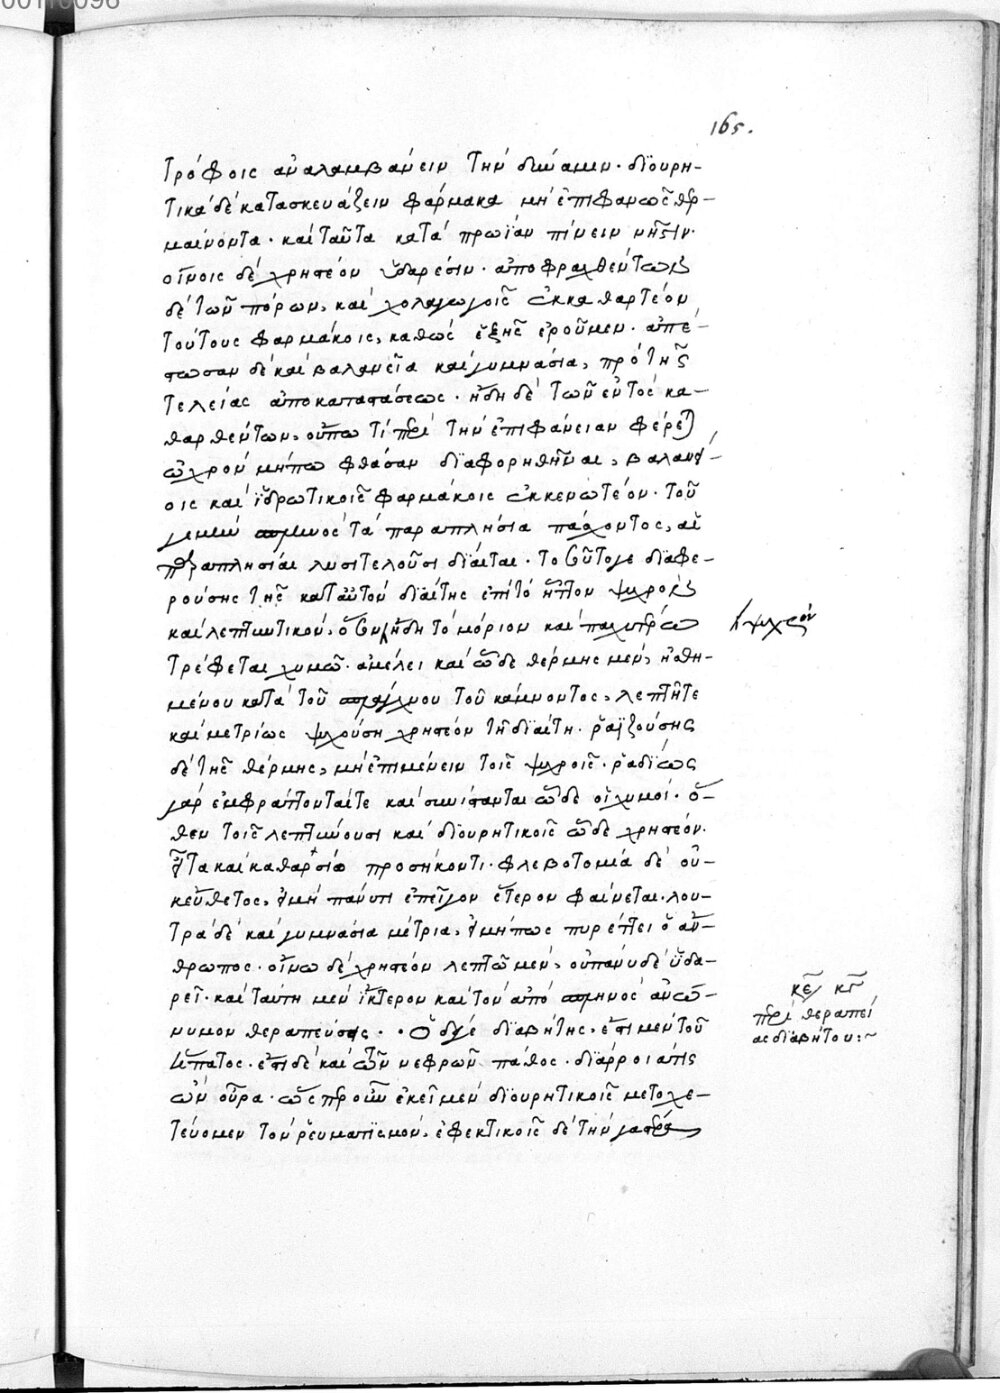 165.
τρόφοις ἀναλαμβάνειν τὴν δύναμιν· διουρη-
τικὰ δὲ κατασκευάζειν φάρμακα μὴ ἐπιφανῶς θερ-
μαίνοντα· καὶ ταῦτα κατὰ πρωΐαν πίνειν νῆστιν·
οἴνοις δὲ χρηστέον ὑδαρέσιν· ἀποφραχθέντων
δὲ τῶν πόρων, καὶ χολαγωγοῖς ἐκκαθαρτέον
τούτους φαρμάκοις, καθὼς ἑξῆς ἐροῦμεν· ἀπέ-
στωσαν δὲ καὶ βαλανεῖα καὶ γυμνάσια, πρὸ τῆς
τελείας ἀποκαταστάσεως· ἤδη δὲ τῶν ἐντὸς κα-
θαρθέντων, οὔπω τί περὶ τὴν ἐπιφάνειαν φέρεται
ὠχρὸν μήπω φθάσαν διαφορηθῆναι, βαλανεί-
οις καὶ ἱδρωτικοῖς φαρμάκοις ἐκκενωτέον· τοῦ
τὰ παραπλήσια πάσχοντος, αἱ
παραπλησίαι λυσιτελοῦσι δίαιται· τοσοῦτό γε διαφε-
ρούσης τῆς κατ' αὐτὸν διαίτης ἐπὶ τὸ ἧττον
καὶ λεπτυντικόν, τὸ μόριον καὶ
ψυχρόν
τρέφεται χυμῷ· ἀμέλει καὶ ὧδε θέρμης μὲν, ἠσθη-
μένου κατὰ τοῦ τοῦ κάμνοντος, λεπτῇ τε
καὶ μετρίως ψυχούσῃ χρηστέον τῇ διαίτῃ· ῥαϊζούσης
δὲ τῆς θέρμης, μὴ ἐπιμένειν τοῖς ψυχροῖς· ῥαδίως
γὰρ ἐμφράττονταί τε καὶ συνίστανται ὧδε οἱ χυμοί· ὅ-
θεν τοῖς λεπτύνουσι καὶ διουρητικοῖς ὧδε χρηστέον·
εἶτα καὶ καθαρσίῳ προσήκοντι· φλεβοτομία δὲ οὐ-
κ εὔθετος, εἰ μὴ πάνυ τι ἐπεῖγον ἕτερον φαίνεται· λου-
τρὰ δὲ καὶ γυμνάσια μέτρια, εἰ μήπως πυρέττει ὁ ἄν-
θρωπος· οἴνῳ δὲ χρηστέον λεπτῷ μὲν, οὐ πάνυ δὲ ὑδα-
ρεῖ· καὶ ταύτῃ μὲν ἴκτερον καὶ τὸν ἀπὸ σπληνὸς ἀνώ-
νυμον θεραπεύσεις·· Ὁ δέ γε διαβήτης, ἔστι μὲν τοῦ
κεφ κγ
περὶ θεραπεί
ας διαβήτου:~
ἥπατος· ἔστι δὲ καὶ τῶν νεφρῶν πάθος· διάρροιά τις
ὢν οὖρα· ὥσπερ οὖν ἐκεῖ μὲν διουρητικοῖς μετοχε-
τεύομεν τὸν ῥευματισμόν, ἐφεκτικοῖς δὲ τὴν γαστέρα